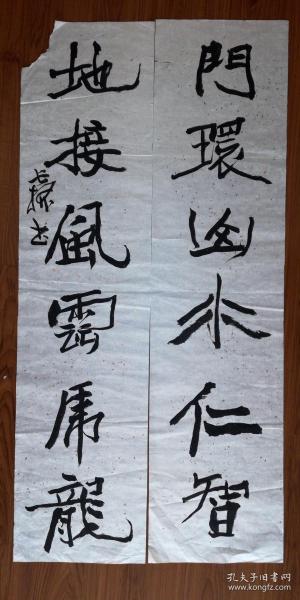 門環山水仁智
地接風雲虎龍
孔夫子旧书网
www.kongfz.com